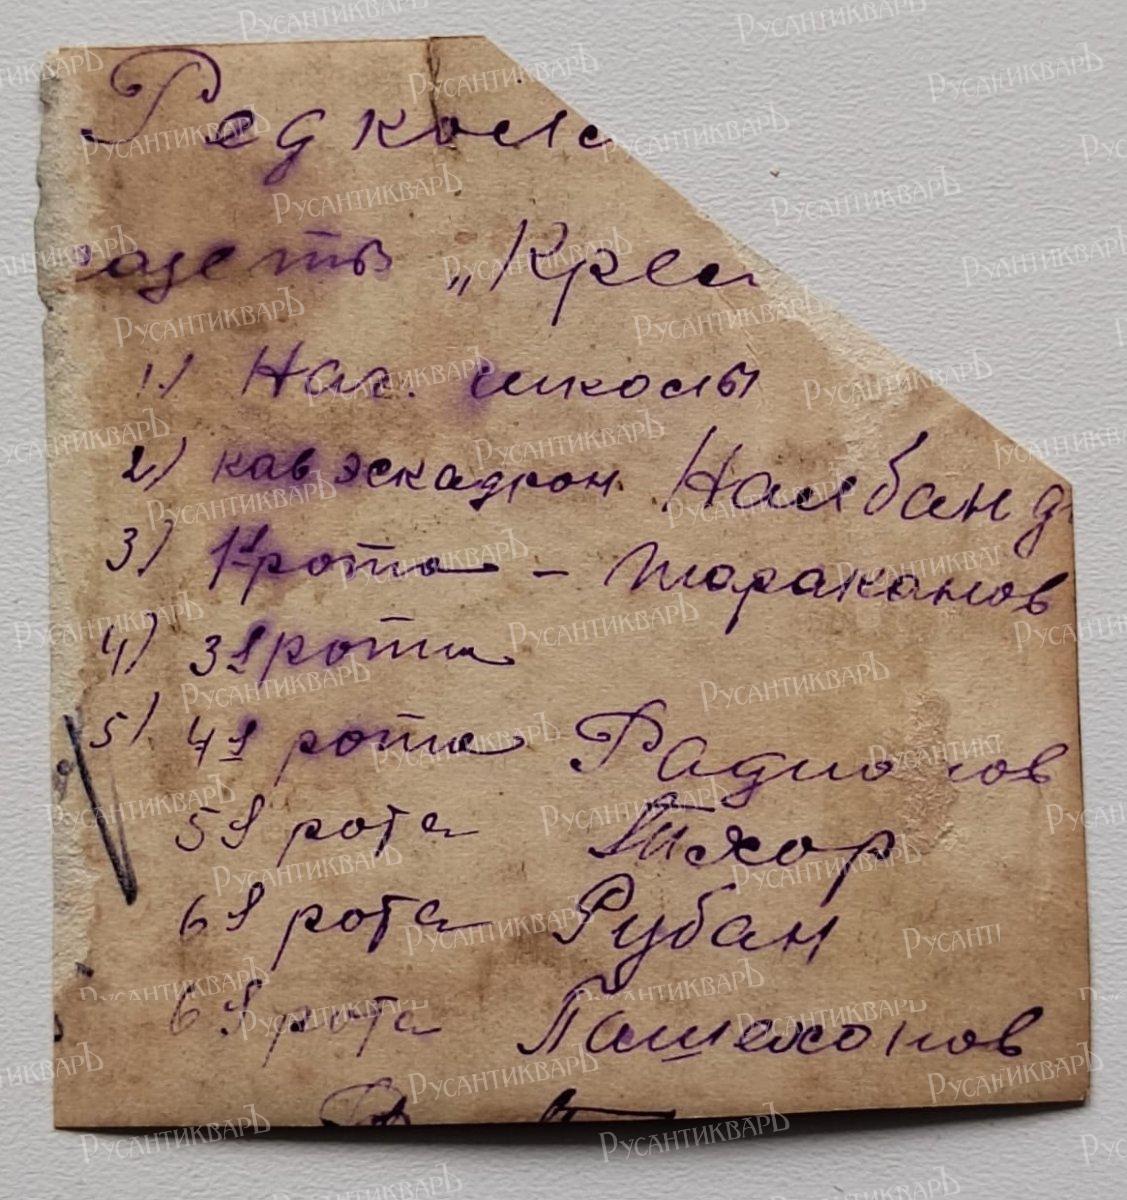 Редколле
газеты „Крем
1) Нач. школы
2) кав эскадрон Налбанд
3) 1я рота – Тараканов
4) 3я рота
5) 4я рота Радионов
5я рота Тхор
6я рота Рубан
6я рота Пашехонов